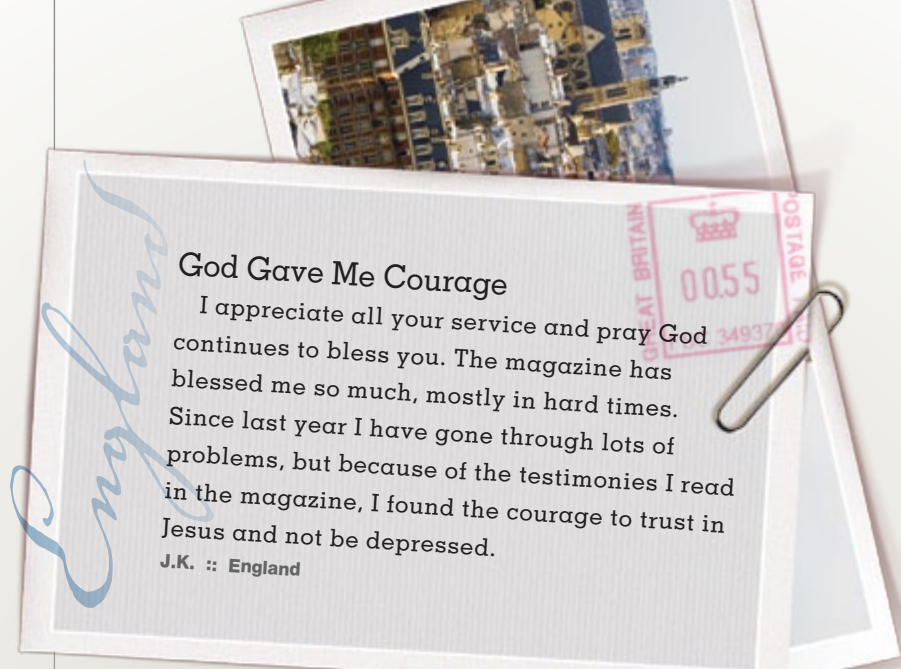 England
God Gave Me Courage
I appreciate all your service and pray God
continues to bless you. The magazine has
blessed me so much, mostly in hard times.
Since last year I have gone through lots of
problems, but because of the testimonies I read
in the magazine, I found the courage to trust in
Jesus and not be depressed.
J.K. :: England
GREAT BRITAIN
0055
POSTAGE
34937